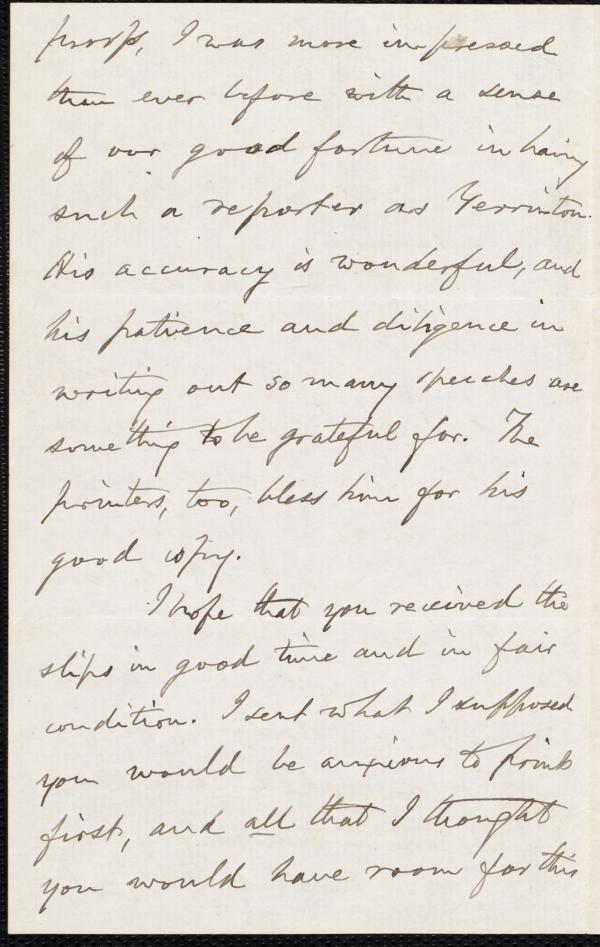 proofs, I was more impressed
than ever before with a sense
of our good fortune in having
such a reporter as Yerrinton.
His accuracy is wonderful, and
his patience and diligence in
writing out so many speeches are
something to be grateful for. The
printers, too, bless him for his
good copy.
I hope that you received the
slips in good time and in fair
condition. I sent what I supposed
you would be anxious to print
first, and all that I thought
you would have room for this